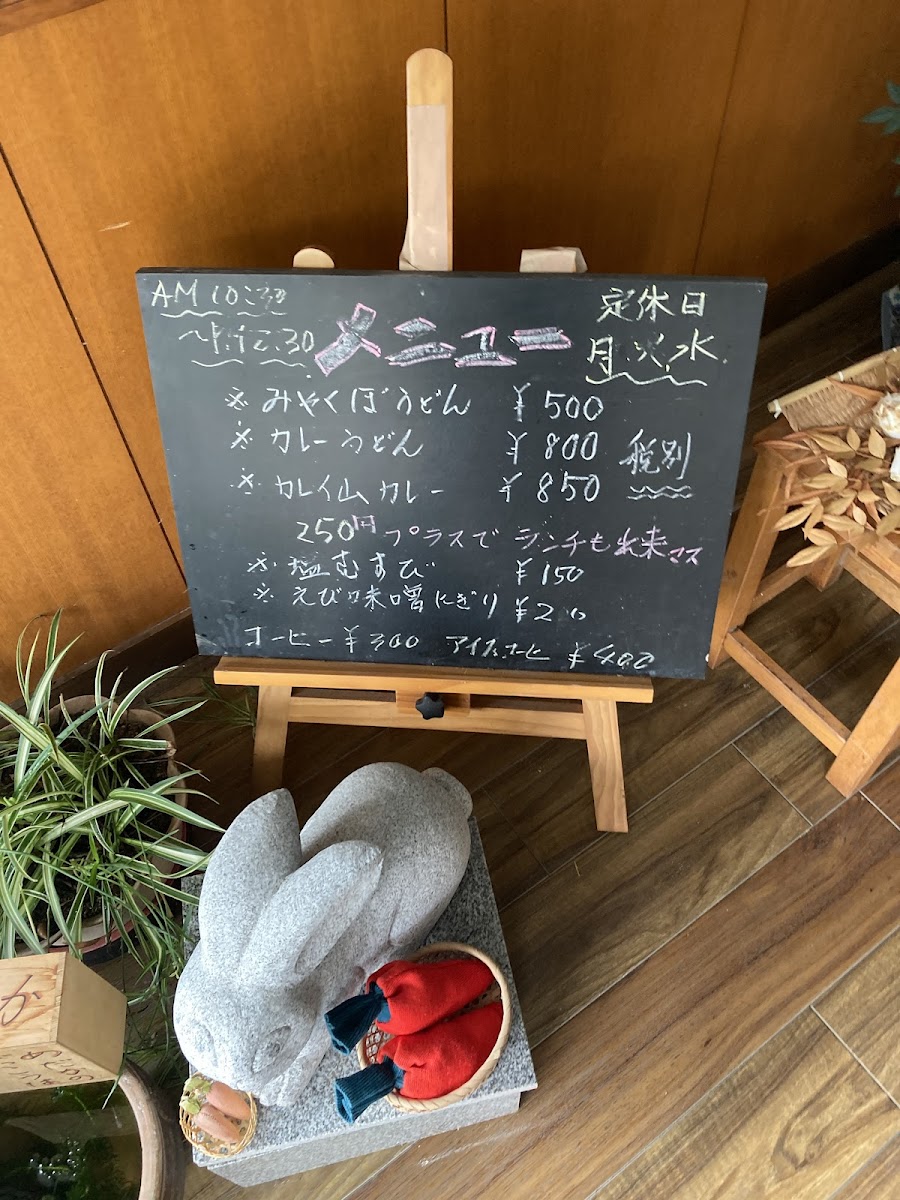 AM 10:30
定休日
メニュー
月.火.水.
※ みやくぼうどん ¥500
※ カレーうどん ¥800 税別
※ カレイ山カレー ¥850
250円プラスでランチも出来マス
※ 塩むすび ¥150
※ えび味噌にぎり
コーヒー ¥300 アイスコーヒ ¥400